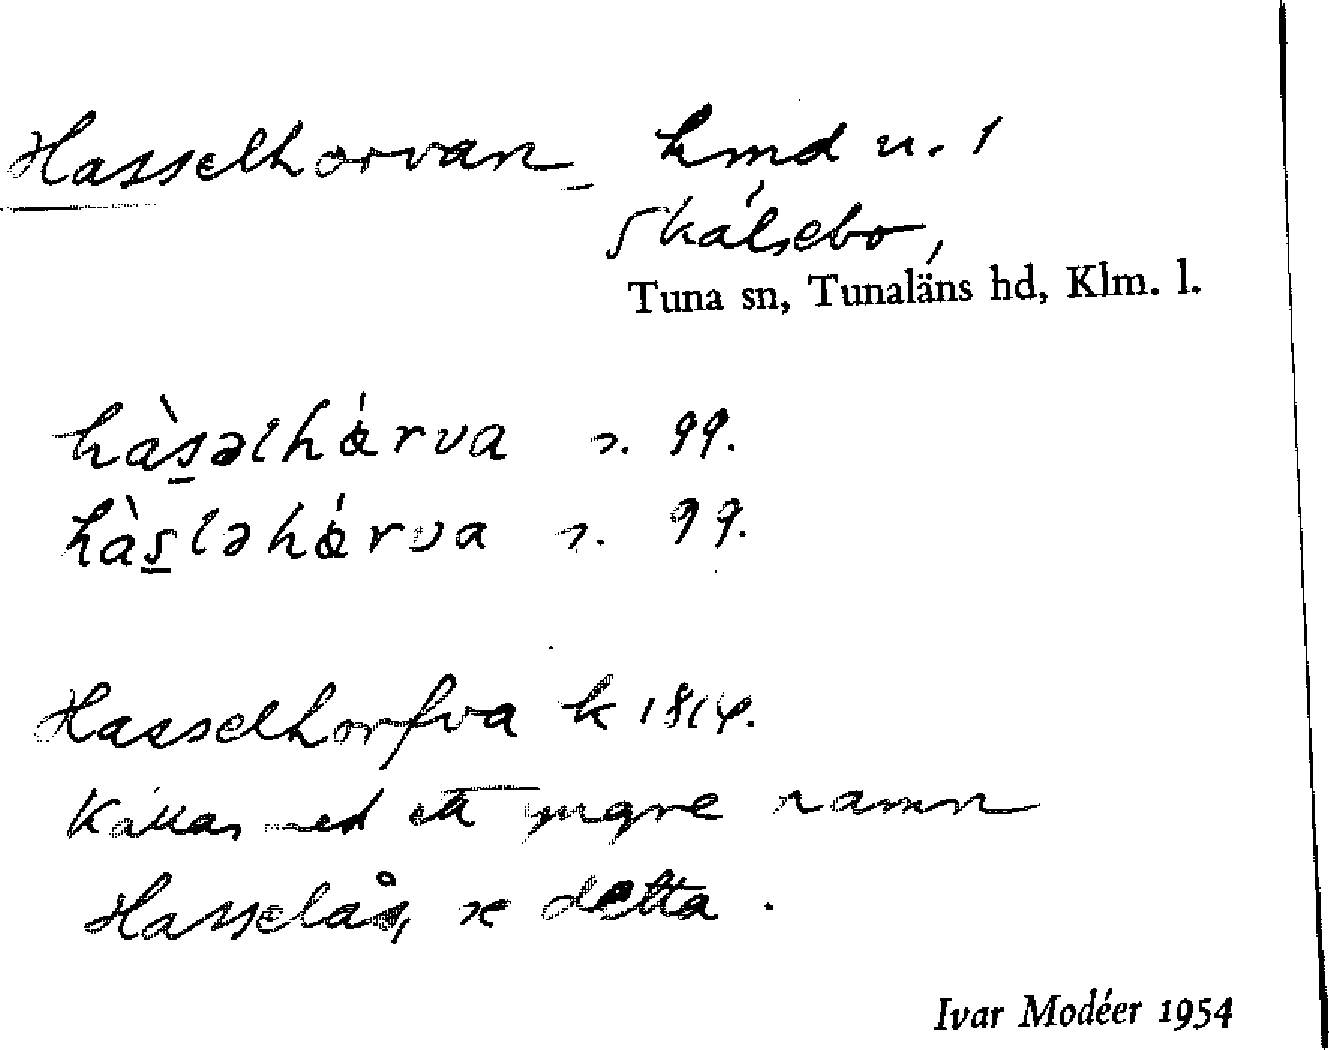 Hasselhorvan hmd u. 1
Skälsebo,
Tuna sn, Tunaläns hd, Klm. l.
hàs̱əlhárva s. 99.
hàs̱ləhárva s. 99.
Hasselhorfva k 1814.
Kallas med ett yngre namn
Hasselås, se detta.
Ivar Modéer 1954